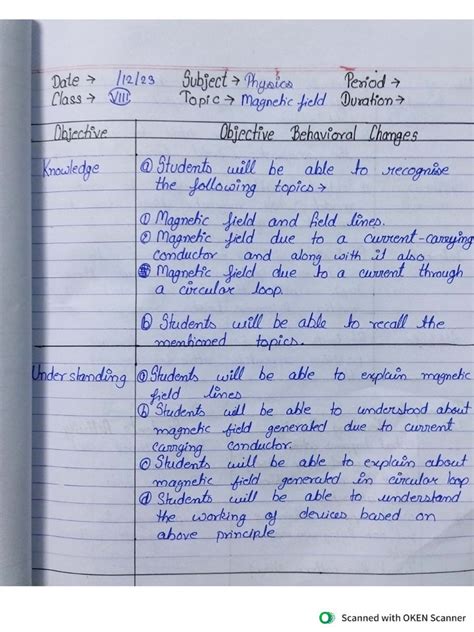 Date → /12/23 Subject → Physics Period →
Class → VIII Topic → Magnetic field Duration →
Objective Objective Behavioral Changes
Knowledge ⓐ Students will be able to recognise
the following topics →
① Magnetic field and field lines.
② Magnetic field due to a current-carrying
conductor and along with it also
Magnetic field due to a current through
a circular loop.
ⓑ Students will be able to recall the
mentioned topics.
Understanding ⓐ Students will be able to explain magnetic
field lines
ⓑ Students will be able to understood about
magnetic field generated due to current
carrging conductor.
ⓒ Students will be able to explain about
magnetic field generated in circular loop
ⓓ Students will be able to understand
the working of devices based on
above principle
Scanned with OKEN Scanner